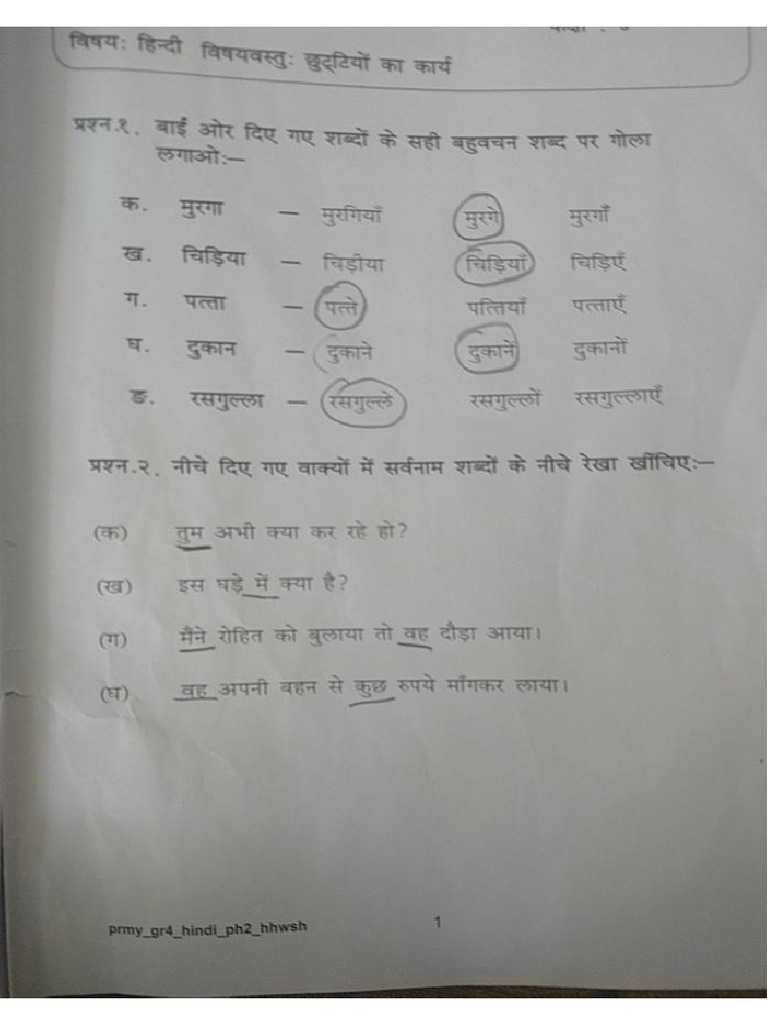 विषयः हिन्दी विषयवस्तुः छुट्टियों का कार्य
प्रश्न.१. बाईं ओर दिए गए शब्दों के सही बहुवचन शब्द पर गोला
लगाओः—
क. मुरगा — मुरगियाँ मुरगे मुरगाँ
ख. चिड़िया — चिड़ीया चिड़ियाँ चिड़िएँ
ग. पत्ता — पत्ते पत्तियाँ पत्ताएँ
घ. दुकान — दुकाने दुकानें दुकानों
ङ. रसगुल्ला — रसगुल्ले रसगुल्लों रसगुल्लाएँ
प्रश्न.२. नीचे दिए गए वाक्यों में सर्वनाम शब्दों के नीचे रेखा खींचिएः—
(क) तुम अभी क्या कर रहे हो?
(ख) इस घड़े में क्या है?
(ग) मैंने रोहित को बुलाया तो वह दौड़ा आया।
(घ) वह अपनी बहन से कुछ रुपये माँगकर लाया।
prmy_gr4_hindi_ph2_hhwsh 1